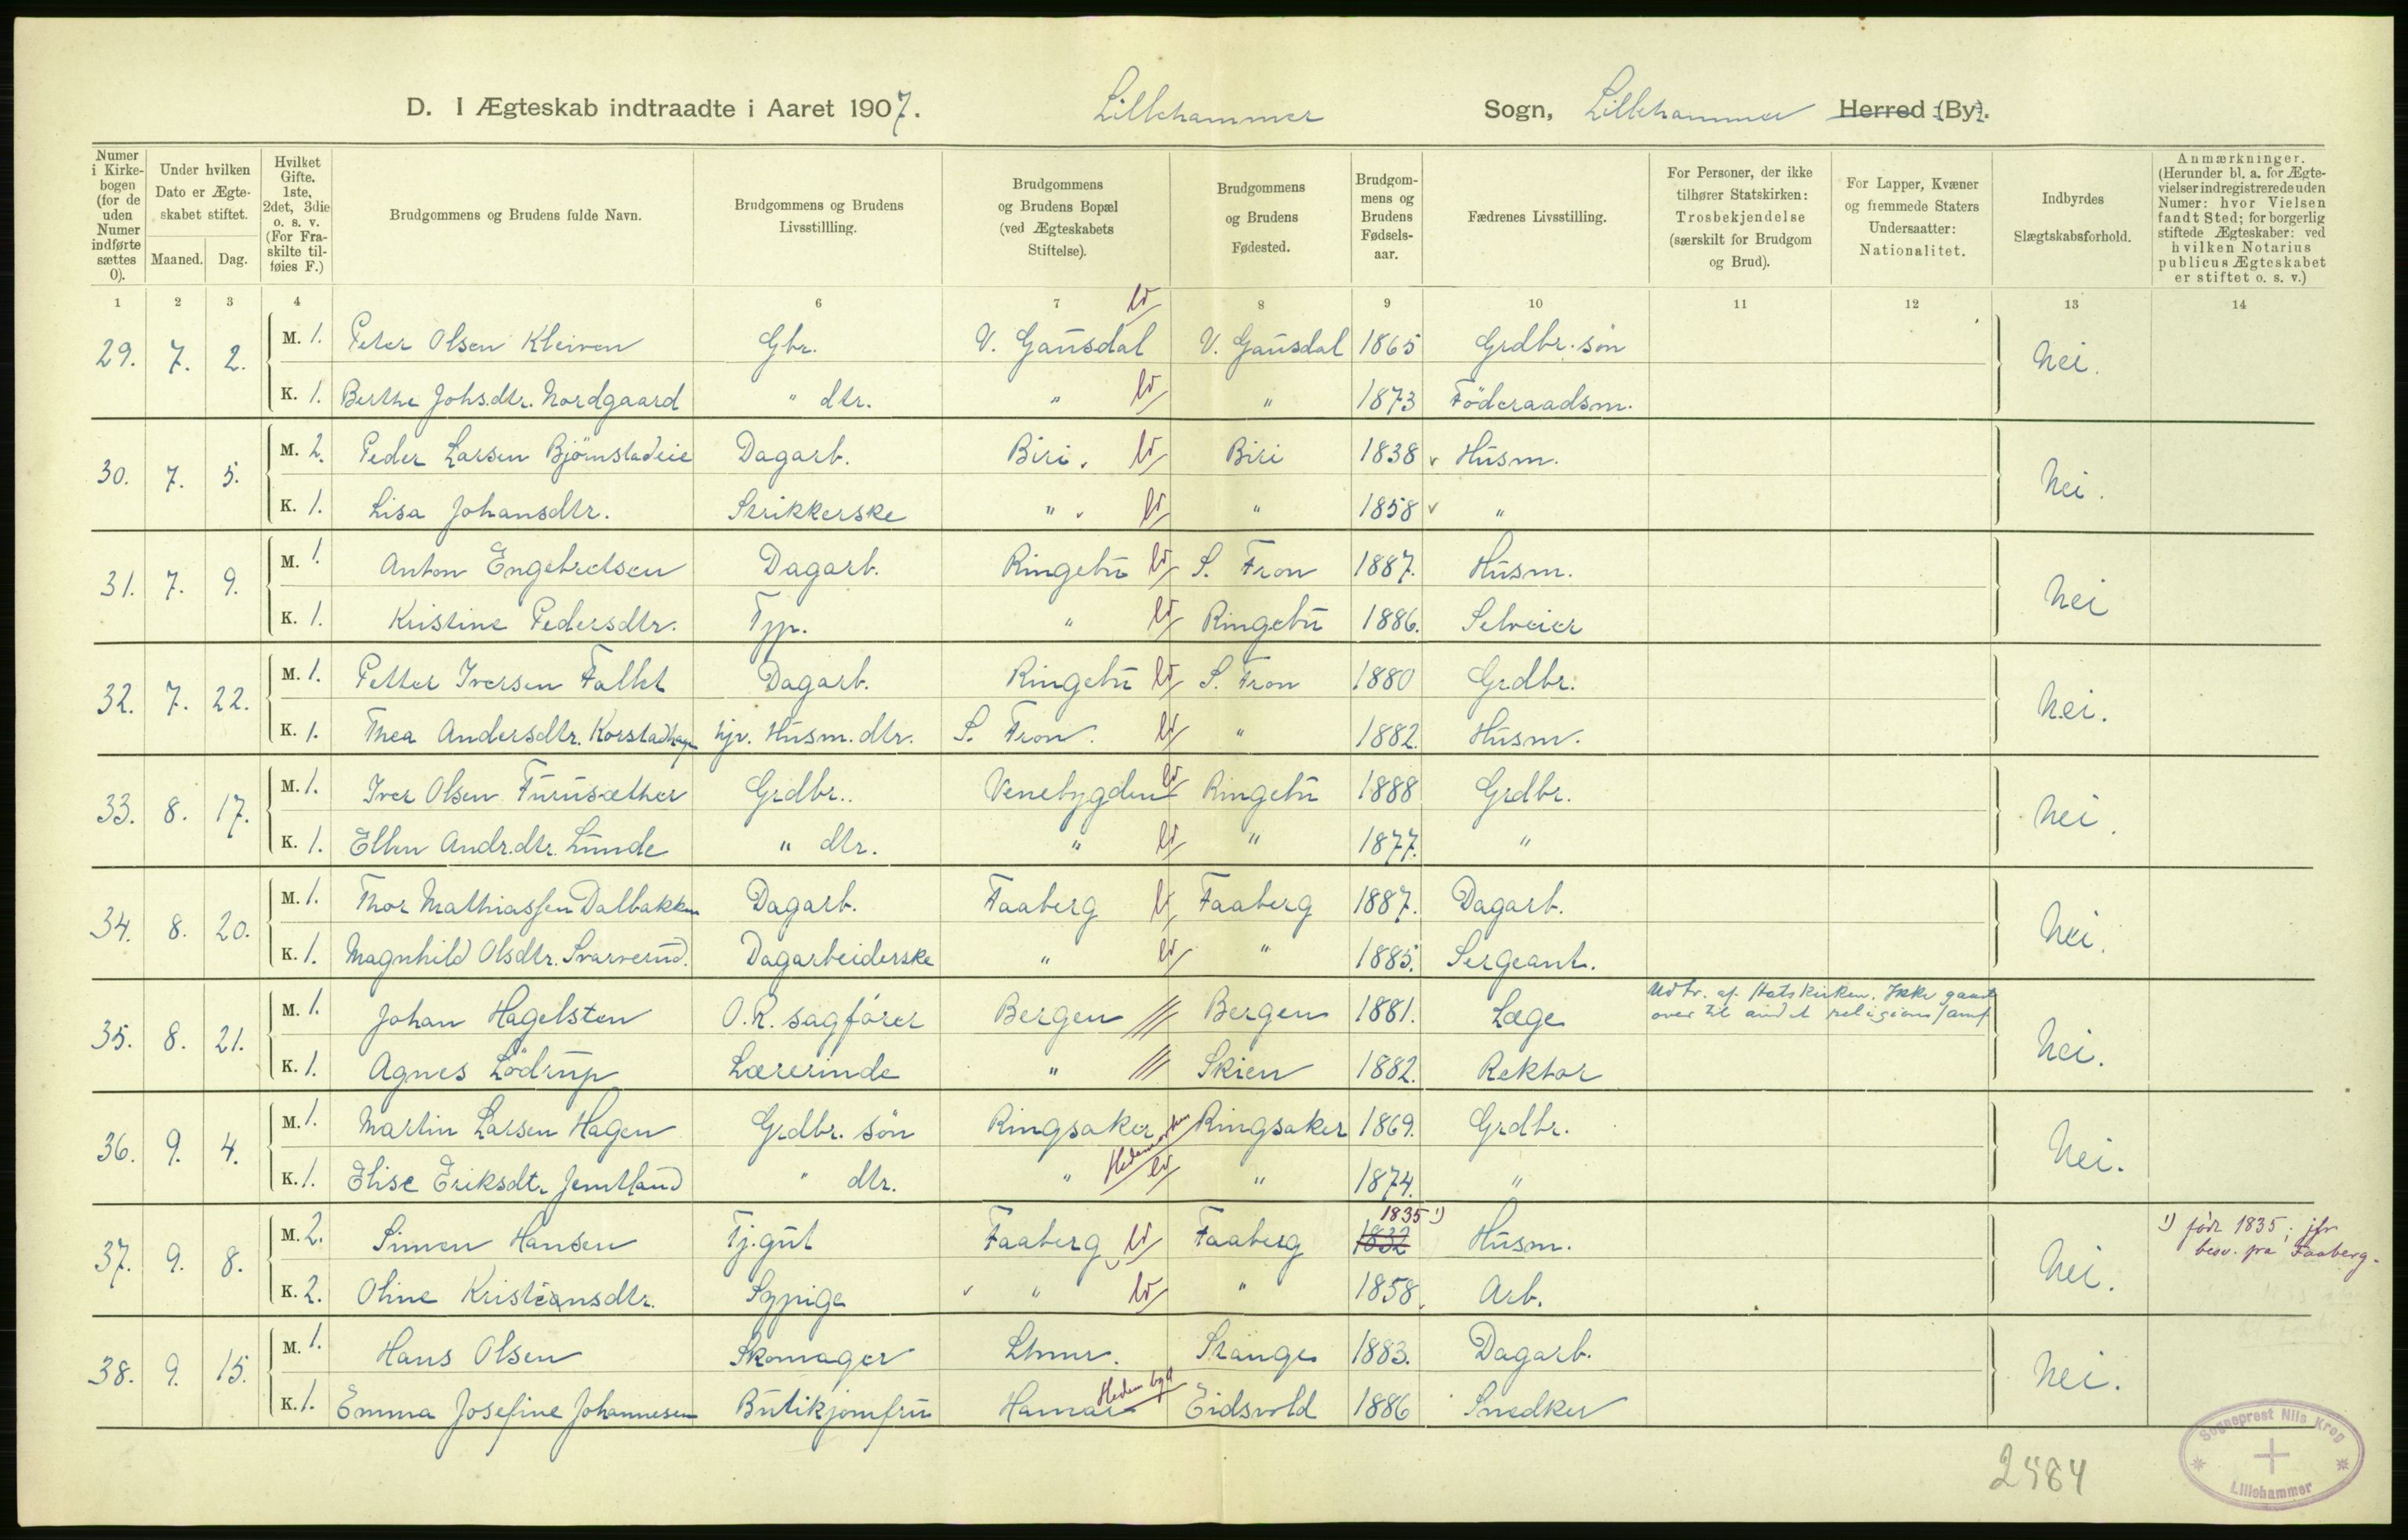 D. I Ægteskab indtraadte i Aaret 1907. Lillehammer Sogn, Lillehammer Herred (By).
Numer i Kirkebogen (for de uden Numer indførte sættes 0).
Under hvilken Dato er Ægteskabet stiftet.
Maaned. Dag.
Hvilket Gifte. 1ste, 2det, 3die o. s. v. (For Fraskilte tilføies F.)
Brudgommens og Brudens fulde Navn.
Brudgommens og Brudens Livsstillling.
Brudgommens og Brudens Bopæl (ved Ægteskabets Stiftelse).
Brudgommens og Brudens Fødested.
Brudgommens og Brudens Fødselsaar.
Fædrenes Livsstilling.
For Personer, der ikke tilhører Statskirken: Trosbekjendelse (særskilt for Brudgom og Brud).
For Lapper, Kvæner og fremmede Staters Undersaatter: Nationalitet.
Indbyrdes Slægtskabsforhold.
Anmærkninger. (Herunder bl. a. for Ægtevielser indregistrerede uden Numer: hvor Vielsen fandt Sted; for borgerlig stiftede Ægteskaber: ved hvilken Notarius publicus Ægteskabet er stiftet o. s. v.)
1 2 3 4 6 7 8 9 10 11 12 13 14
29. 7. 2. M. 1. Peter Olsen Kleiven Gbr. V. Gausdal V. Gausdal 1865 Grdbr. søn Nei.
K. 1. Berthe Johs.dtr. Nordgaard " dtr. " " 1873 Föderaadsm.
30. 7. 5. M. 2. Peder Larsen Bjørnstadeie Dagarb. Biri. Biri 1838 Husm. Nei.
K. 1. Lisa Johansdtr. Strikkerske " " 1858 "
31. 7. 9. M. 1. Anton Engebretsen Dagarb. Ringebu S. Fron 1887. Husm. Nei
K. 1. Kristine Pedersdtr. Tjp. " Ringebu 1886. Selveier
32. 7. 22. M. 1. Petter Iversen Fallet Dagarb. Ringebu S. Fron 1880 Grdbr. Nei.
K. 1. Thea Andersdtr. Korstadhagen hjv. Husm. dtr. S. Fron. " 1882. Husm.
33. 8. 17. M. 1. Iver Olsen Furusæther Grdbr. Venebygden Ringebu 1888 Grdbr. Nei.
K. 1. Ellen Andr.dtr. Lunde " dtr. " " 1877. "
34. 8. 20. M. 1. Thor Mathiassen Dalbakken Dagarb. Faaberg Faaberg 1887. Dagarb. Nei.
K. 1. Magnhild Olsdtr. Svarverud. Dagarbeiderske " " 1885. Sergeant.
35. 8. 21. M. 1. Johan Hagelsten O.R. sagfører Bergen Bergen 1881. Læge Udtr. af Statskirken. Ikke gaaet over til andet religionssamf Nei.
K. 1. Agnes Lödrup Lærerinde " Skien 1882. Rektor
36. 9. 4. M. 1. Martin Larsen Hagen Grdbr. søn Ringsaker Ringsaker 1869. Grdbr. Nei.
K. 1. Elise Eriksdt. Jemtland " dtr. " " 1874. "
37. 9. 8. M. 2. Simen Hansen Tj.gut Faaberg Faaberg 1832 1835 1) Husm. Nei. 1) født 1835; jfr besv. fra Faaberg.
K. 2. Oline Kristiansdtr. Sypige " " 1858. Arb.
38. 9. 15. M. 1. Hans Olsen Skomager Lhmr. Stange 1883. Dagarb. Nei.
K. 1. Emma Josefine Johannesen Butikjomfru Hamar Eidsvold 1886 Snedker
2584
Sogneprest Nils Krog
Lillehammer